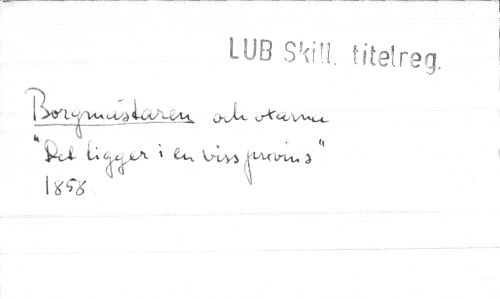 LUB Skill. titelreg.
Borgmästaren och oxarne
"Det ligger i en viss provins"
1858